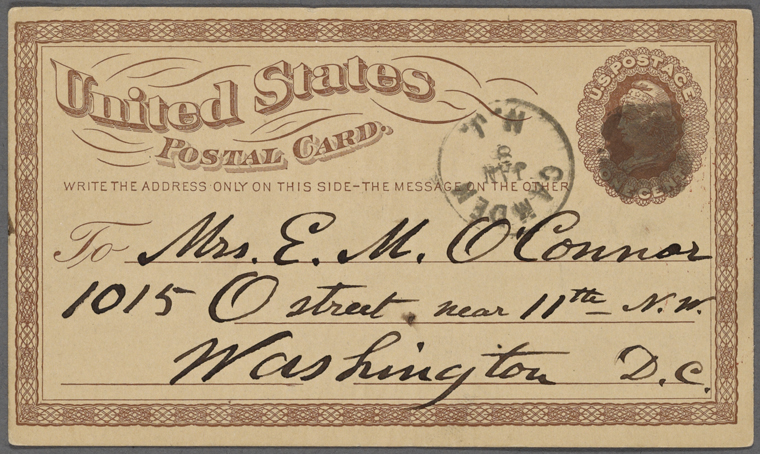 United States
POSTAL CARD.
U.S. POSTAGE
ONE CENT
WRITE THE ADDRESS ONLY ON THIS SIDE–THE MESSAGE ON THE OTHER
CAMDEN N.J.
JAN
8
To Mrs. E. M. O'Connor
1015 O street, near 11th N.W.
Washington D.C.